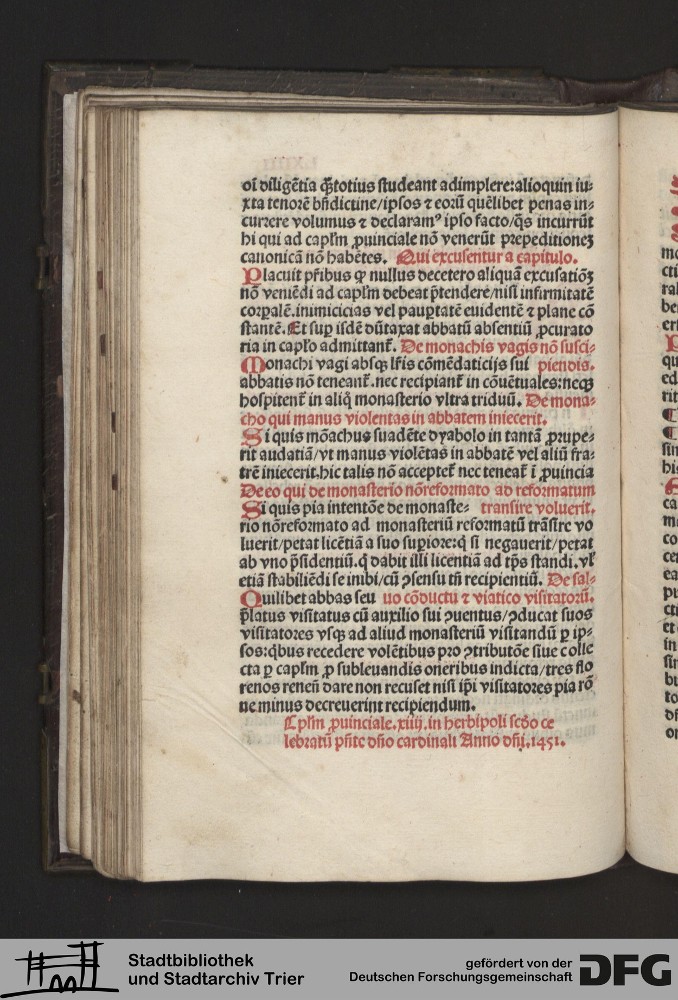 oī diligētia q̄stotius studeant adimplere: alioquin iu-
xta tenorē bn̄dictine/ipsos ⁊ eorū quēlibet penas in-
currere volumus ⁊ declaramꝰ ipso facto/q̄s incurrūt
hi qui ad capl̄m ꝓuinciale nō venerūt prepeditionē
canonicā nō habētes. Qui excusentur a capitulo.
Placuit pr̄ibus ꝙ nullus decetero aliquā excusatiōꝫ
nō veniēdi ad capl̄m debeat p̄tendere/nisi infirmitatē
corꝑalē. inimicicias vel pauꝑtatē euidentē ⁊ plane cō
stantē. Et suꝑ isdē dūtaxat abbatū absentiū ꝓcurato
ria in capl̄o admittant᷑. De monachis vagis nō susci-
Monachi vagi absqꝫ lr̄is cōmēdaticijs sui piendis.
abbatis nō teneant᷑. nec recipiant᷑ in cōuētuales: necqꝫ
hospitent᷑ in aliq̄ monasterio vltra triduū. De mona-
cho qui manus violentas in abbatem iniecerit.
Si quis mōachus suadēte dyabolo in tantā ꝓrupe-
rit audatiā/vt manus violētas in abbatē vel aliū fra-
trē iniecerit. hic talis nō acceptet᷑ nec teneat᷑ ī ꝓuincia
De eo qui de monasterio nōreformato ad reformatum
Si quis pia intentōe de monaste- transire voluerit.
rio nōreformato ad monasteriū reformatū trāsire vo
luerit/petat licētiā a suo suꝑiore: q̄ si negauerit/petat
ab vno p̄sidentiū. q̄ dabit illi licentiā ad tp̄s standi. vl̓
etiā stabiliēdi se inibi/cū ꝯsensu tn̄ recipientiū. De sal-
Quilibet abbas seu uo cōductu ⁊ viatico visitatorū.
p̄latus visitatus cū auxilio sui ꝯuentus/ꝯducat suos
visitatores vsqꝫ ad aliud monasteriū visitandū ꝑ ip-
sos: q̄bus recedere volētibus pro ꝯtributōe siue colle
cta ꝑ capl̄m ꝓ subleuandis oneribus indicta/tres flo
renos renen̄ dare non recuset nisi ip̄i visitatores pia rō
ne minus decreuerint recipiendum.
Cpl̄m ꝓuinciale. xiiij. in herbipoli sc̄do ce
lebratū p̄n̄te dn̄o cardinali Anno dn̄j. 1451.
Stadtbibliothek
und Stadtarchiv Trier
gefördert von der
Deutschen Forschungsgemeinschaft
DFG